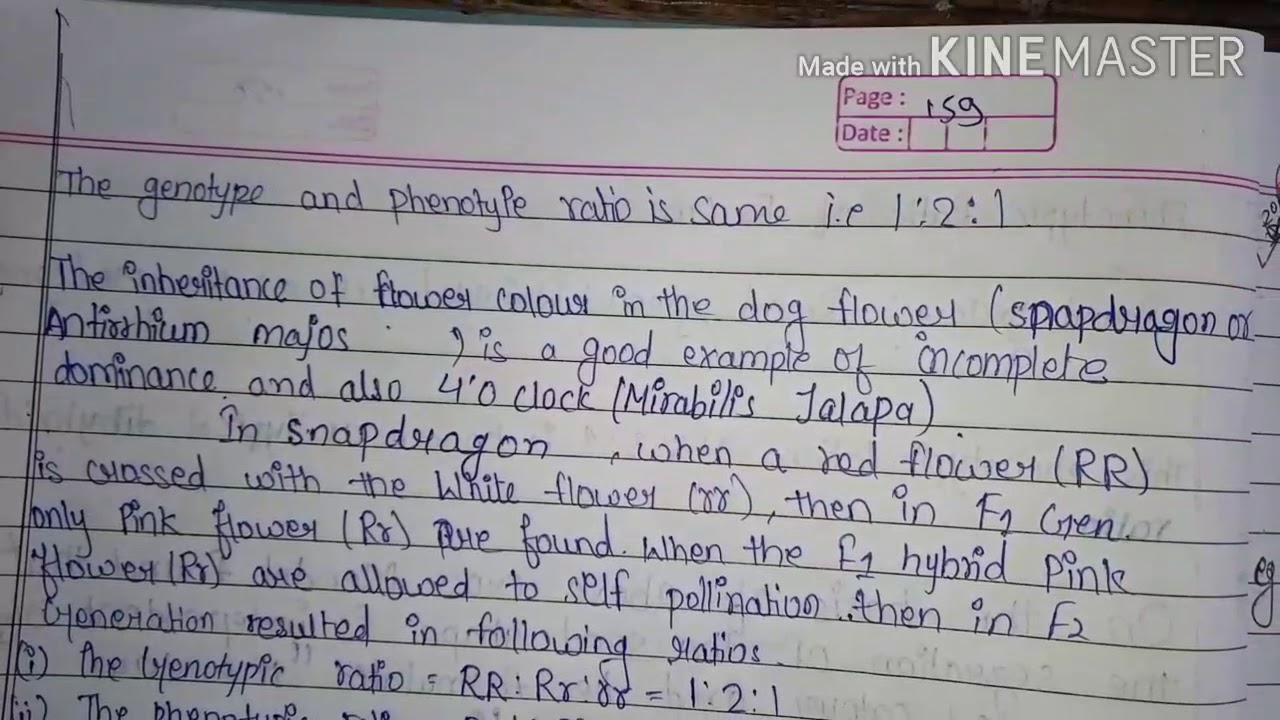 Made with KINEMASTER
Page : 159
Date :
The genotype and phenotype ratio is same i.e 1:2:1
The inheritance of flower colour in the dog flower (snapdragon or
Antirrhium majos ) is a good example of incomplete
dominance and also 4'0 clock (Mirabilis Jalapa).
In snapdragon, when a red flower (RR)
is crossed with the White flower (rr), then in F1 Gen.
only Pink flower (Rr) are found. When the F1 hybrid Pink
flower (Rr) are allowed to self pollination. then in F2
Generation resulted in following ratios.
(i) The Genotypic ratio = RR:Rr:rr = 1:2:1
(ii) The
eg